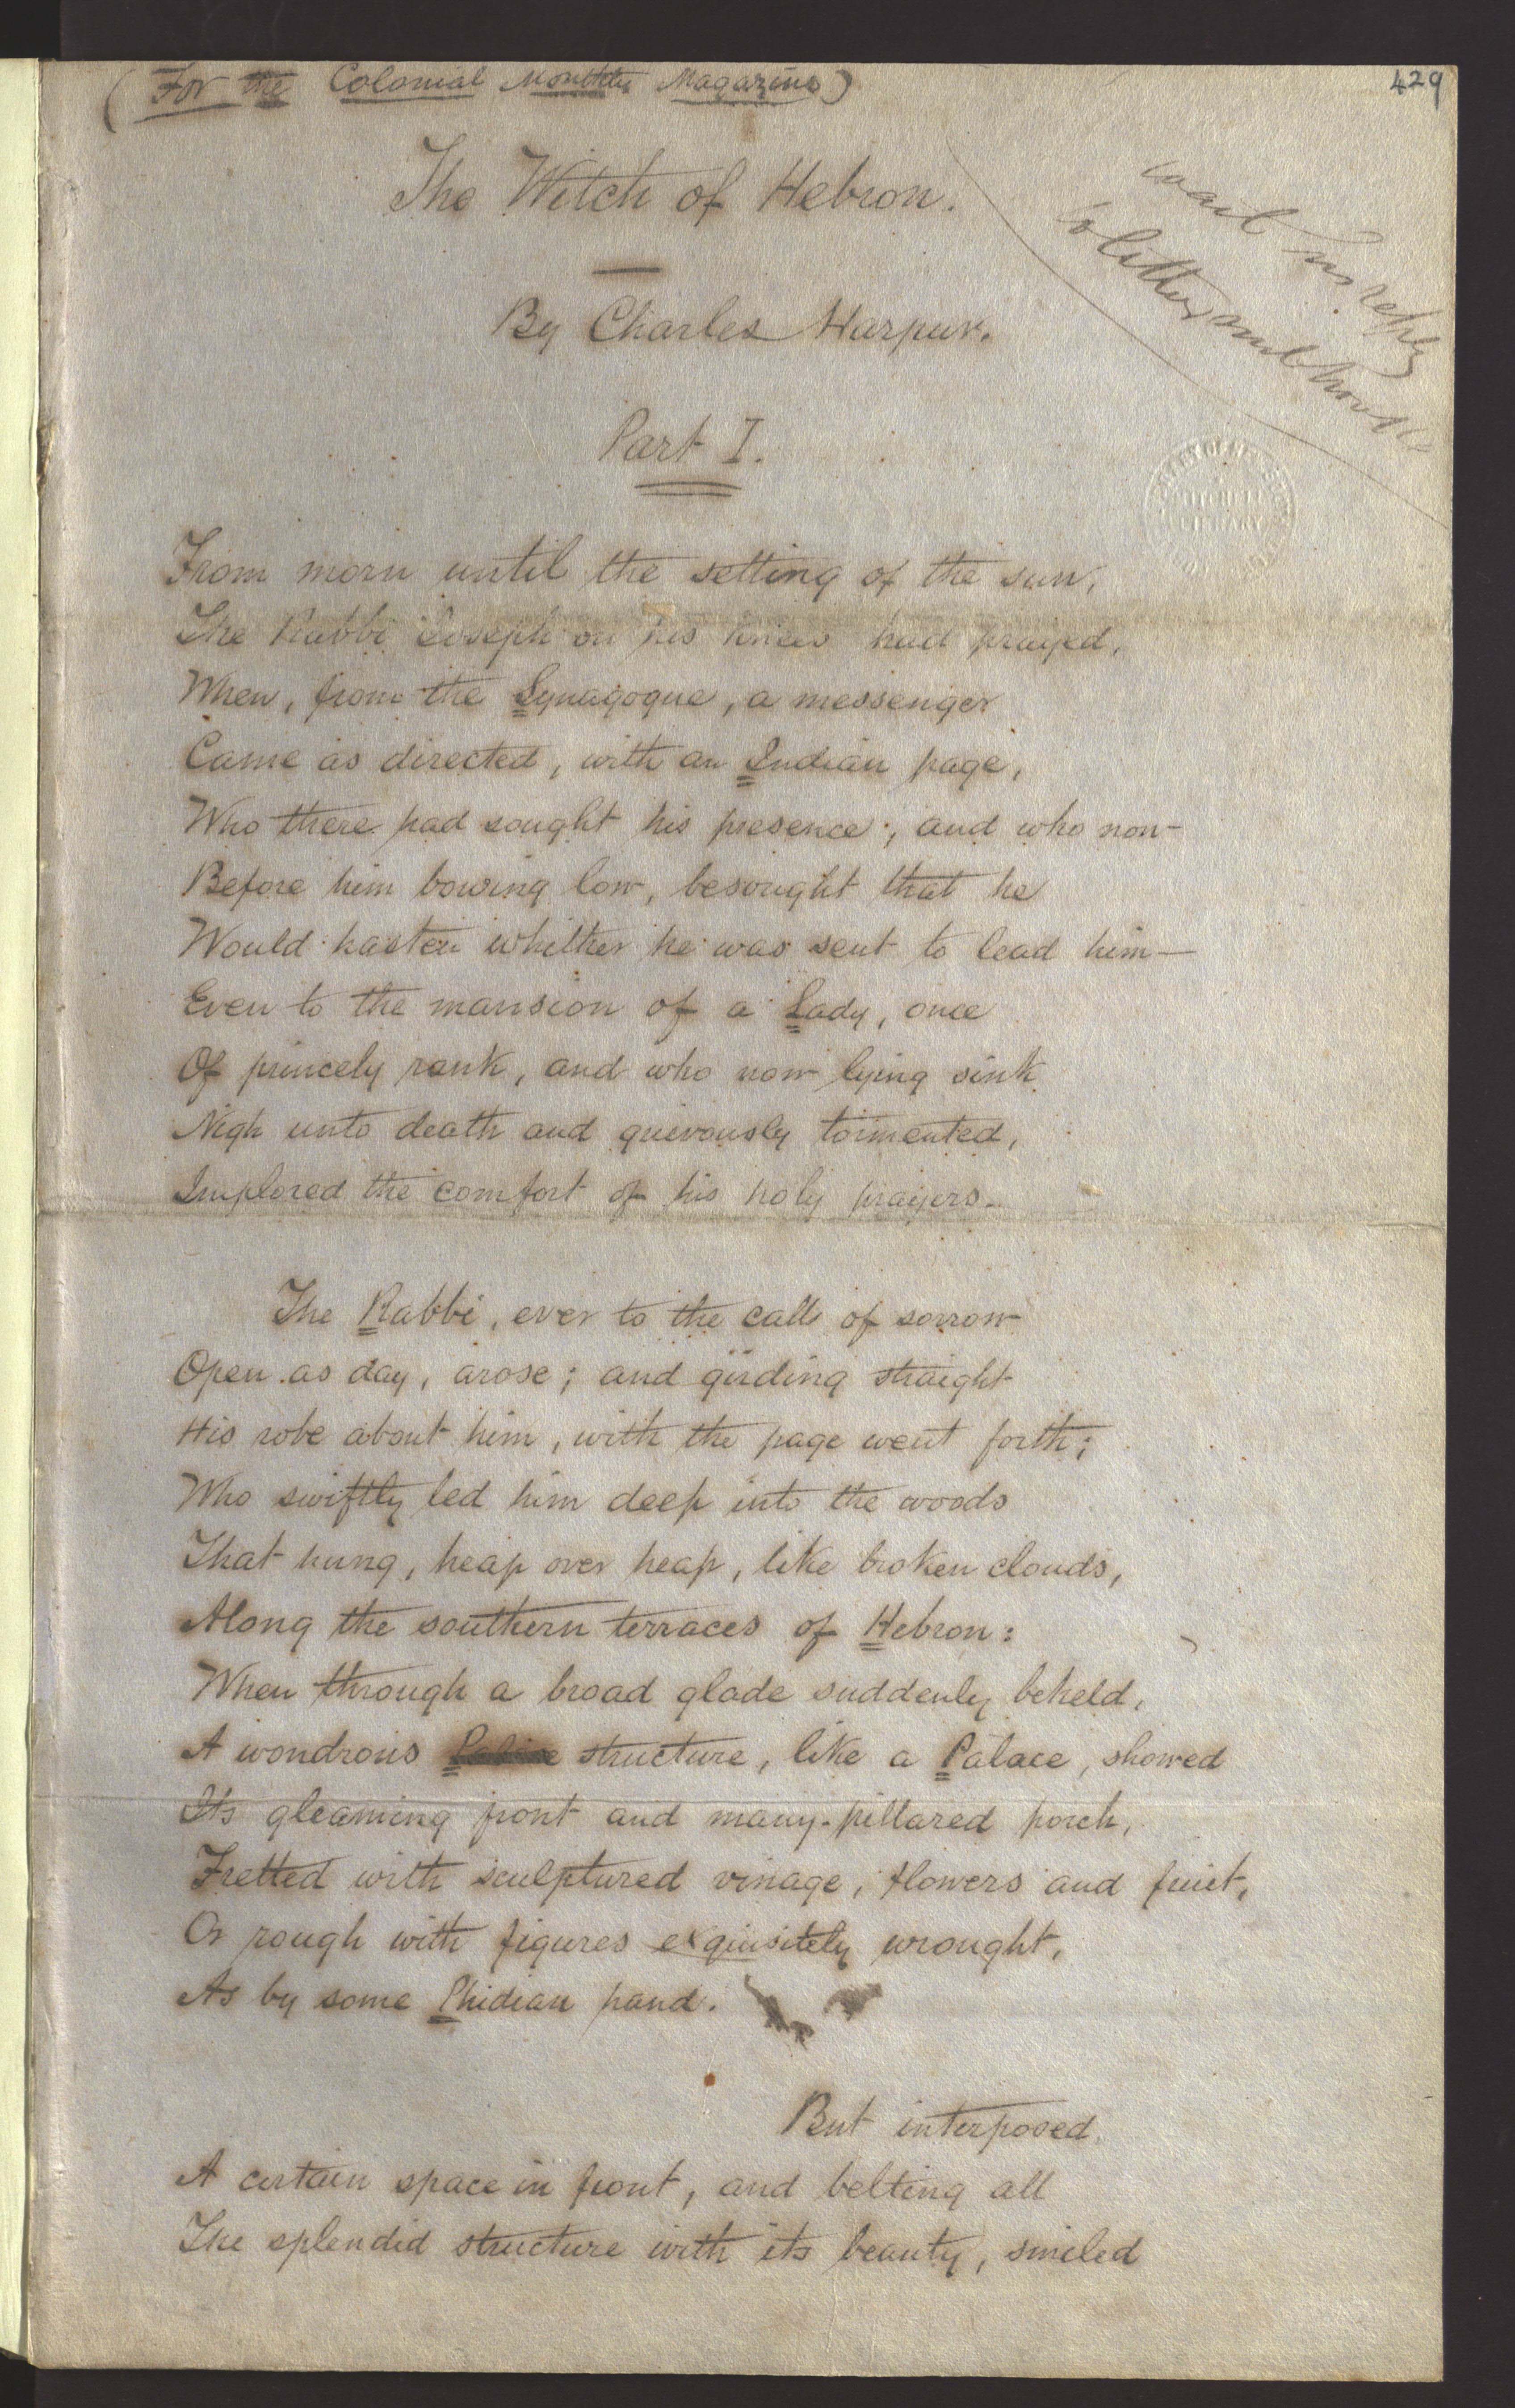 (For the Colonial Monthly Magazine)
429
The Witch of Hebron.
By Charles Harpur.
wait his reply
Part I.
MITCHELL
LIBRARY
From morn until the setting of the sun,
The Rabbi Joseph on his knees had prayed,
When, from the Synagogue, a messenger
Came as directed, with an Indian page,
Who there had sought his presence; and who now
Before him bowing low, besought that he
Would hasten whither he was sent to lead him—
Even to the mansion of a Lady, once
Of princely rank, and who now lying sick
Nigh unto death and grievously tormented,
Implored the comfort of his holy prayers.
The Rabbi, ever to the call of sorrow
Open as day, arose; and girding straight
His robe about him, with the page went forth;
Who swiftly led him deep into the woods
That hung, heap over heap, like broken clouds,
Along the southern terraces of Hebron:
When through a broad glade suddenly beheld,
A wondrous structure, like a Palace, showed
Its gleaming front and many-pillared porch,
Fretted with sculptured vinage, flowers and fruit,
Or rough with figures exquisitely wrought,
As by some Phidian hand.
But interposed
A certain space in front, and belting all
The splendid structure with its beauty, smiled